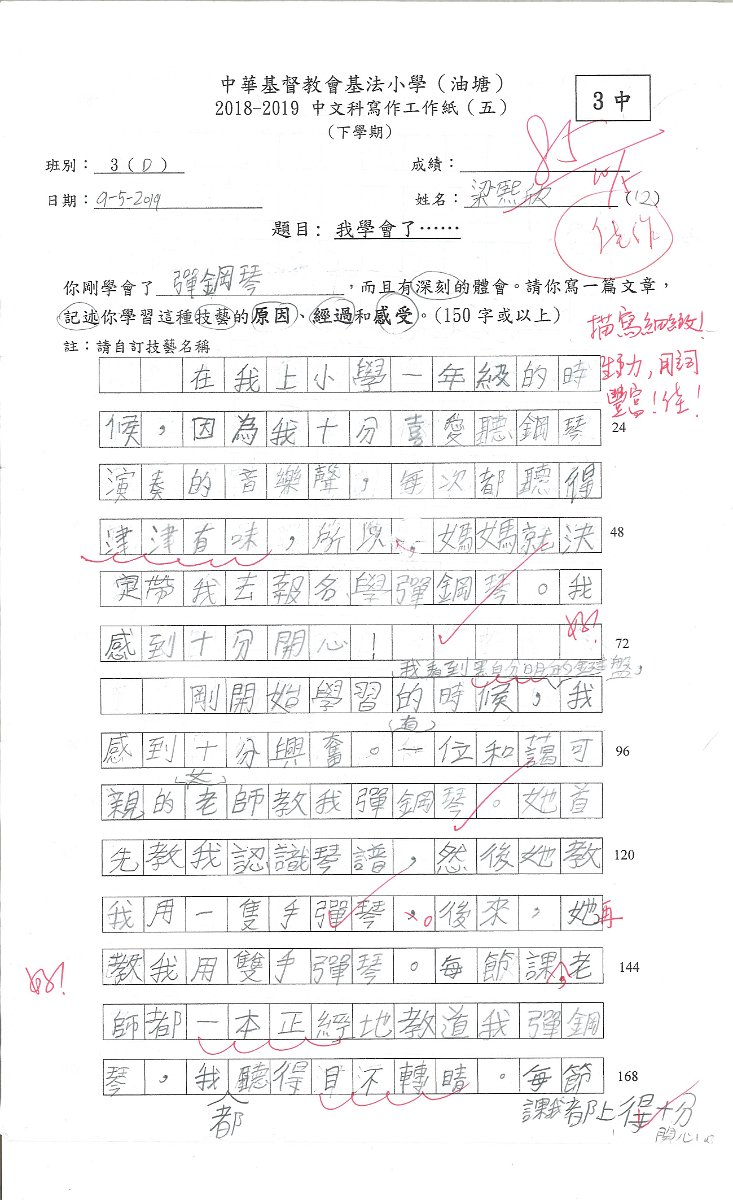 中華基督教會基法小學（油塘）
2018-2019 中文科寫作工作紙（五）
（下學期）
3中
班別： 3(D)
成績： 85
10/5
日期： 9-5-2019
姓名： 梁熙欣 (12)
佳作
題目： 我學會了……
你剛學會了 彈鋼琴 ，而且有深刻的體會。請你寫一篇文章，
記述你學習這種技藝的原因、經過和感受。(150 字或以上)
註：請自訂技藝名稱
描寫細緻！
生動，用詞
豐富！佳！
在我上小學一年級的時
候，因為我十分喜愛聽鋼琴 24
演奏的音樂聲，每次都聽得
津津有味，所以，媽媽就決 48
定帶我去報名學彈鋼琴。我
好！
感到十分開心！ 72
我看到黑白分明的鍵盤，
剛開始學習的時候，我
(有)
感到十分興奮。一位和藹可 96
(女)
親的老師教我彈鋼琴。她首
先教我認識琴譜，然後她教 120
我用一隻手彈琴。後來，她再
好！
教我用雙手彈琴。每節課，老 144
師都一本正經地教道我彈鋼
琴，我聽得目不轉睛。每節 168
都
課我都上得十分
開心！